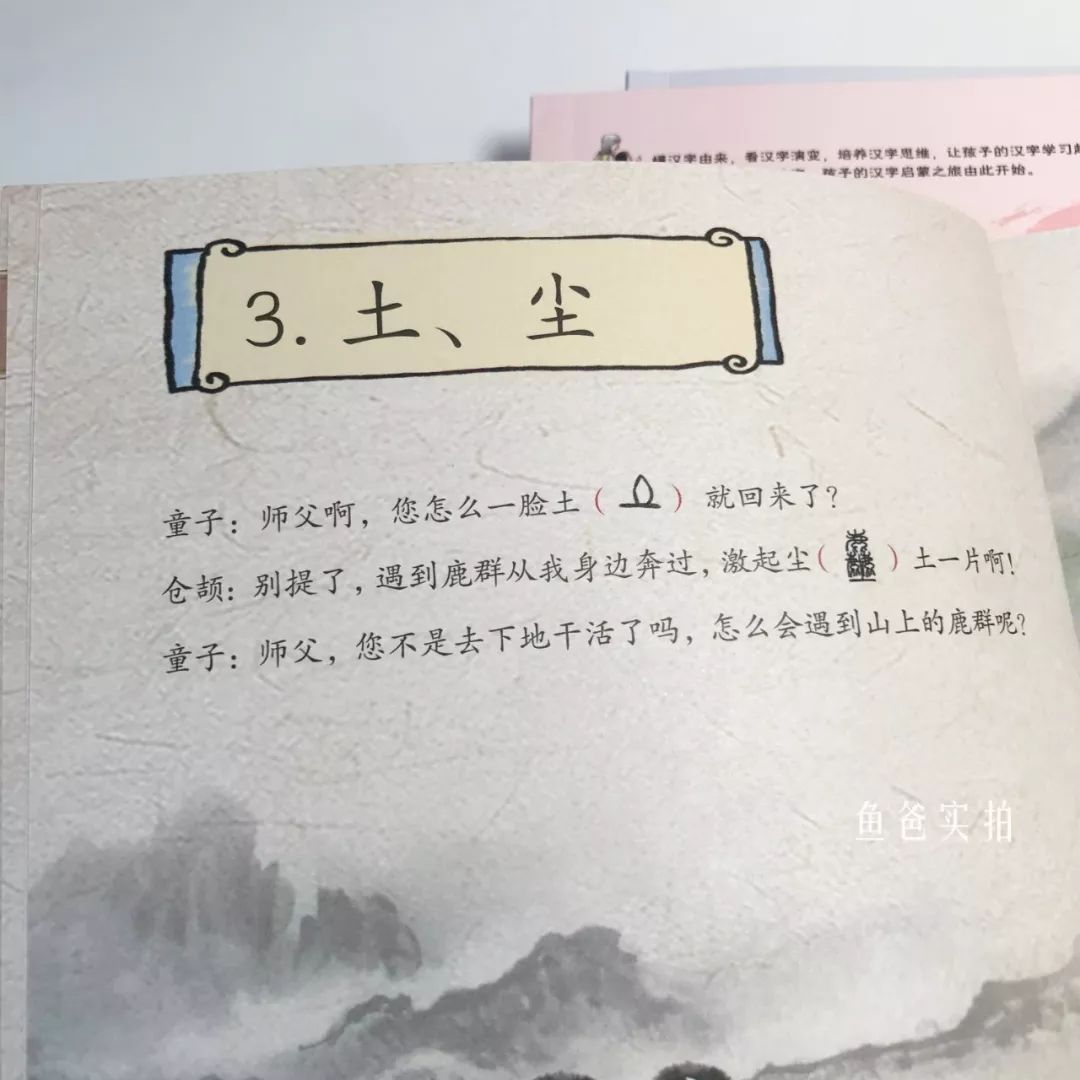 懂汉字由来，看汉字演变，培养汉字思维，让孩子的汉字学习
孩子的汉字启蒙之旅由此开始。
3. 土、尘
童子：师父啊，您怎么一脸土（）就回来了？
仓颉：别提了，遇到鹿群从我身边奔过，激起尘（）土一片啊！
童子：师父，您不是去下地干活了吗，怎么会遇到山上的鹿群呢？
鱼爸实拍